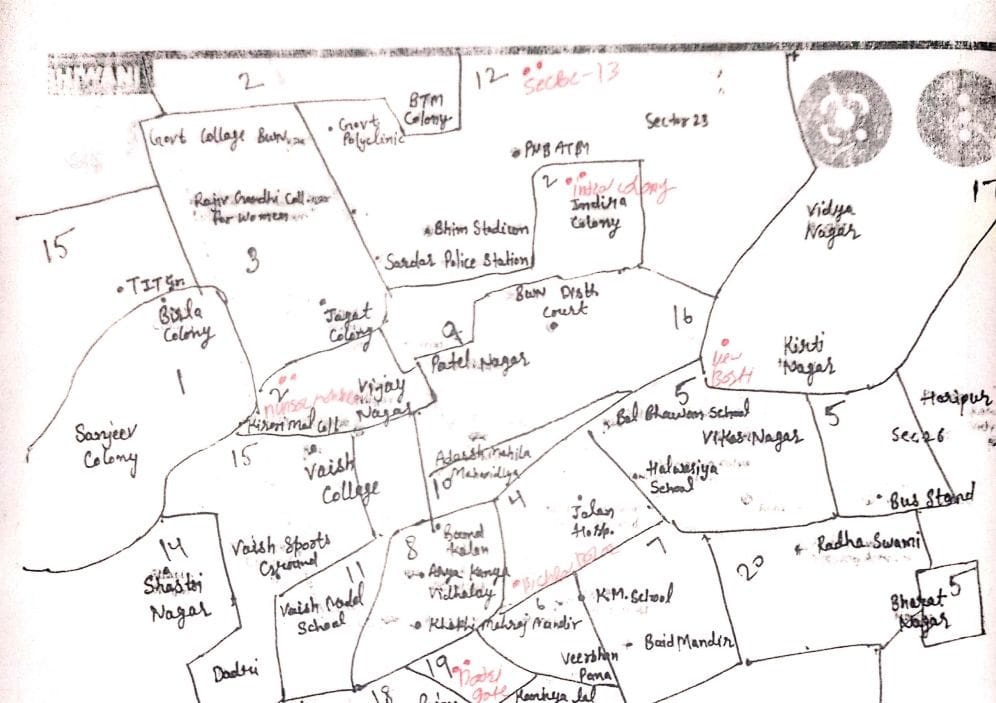 HWANI
2
12
Sector-13
BTM
Colony
Govt College Bwn
Govt
Polyclinic
Sector 23
PNB ATM
2
Indra colony
Indira
Colony
17
Rajiv Gandhi Coll
For Women
Vidya
Nagar
15
3
Bhim Stadium
Sardar Police Station
TIT
Birla
Colony
Jagat
Colony
Bwn Disth
Court
16
9
Patel Nagar
New
Basti
Kirti
Nagar
1
2
Vijay
Nagar
Kirorimal Coll
5
Bal Bhawan School
5
Haripur
Sanjeev
Colony
15
Vaish
College
Adarsh Mahila
Mahavidlya
Vikas Nagar
Sec 26
10
4
Halwasiya
School
Bus Stand
Jalan
Hosp.
14
Vaish Sports
Ground
8
7
Radha Swami
20
Shastri
Nagar
11
Arya Kanya
Vidhalay
K.M. School
5
Bharat
Nagar
Vaish Modal
School
6
Khakhi Mehraj Mandir
Baid Mandir
Dadri
19
Veerbhan
Pana
18
gate